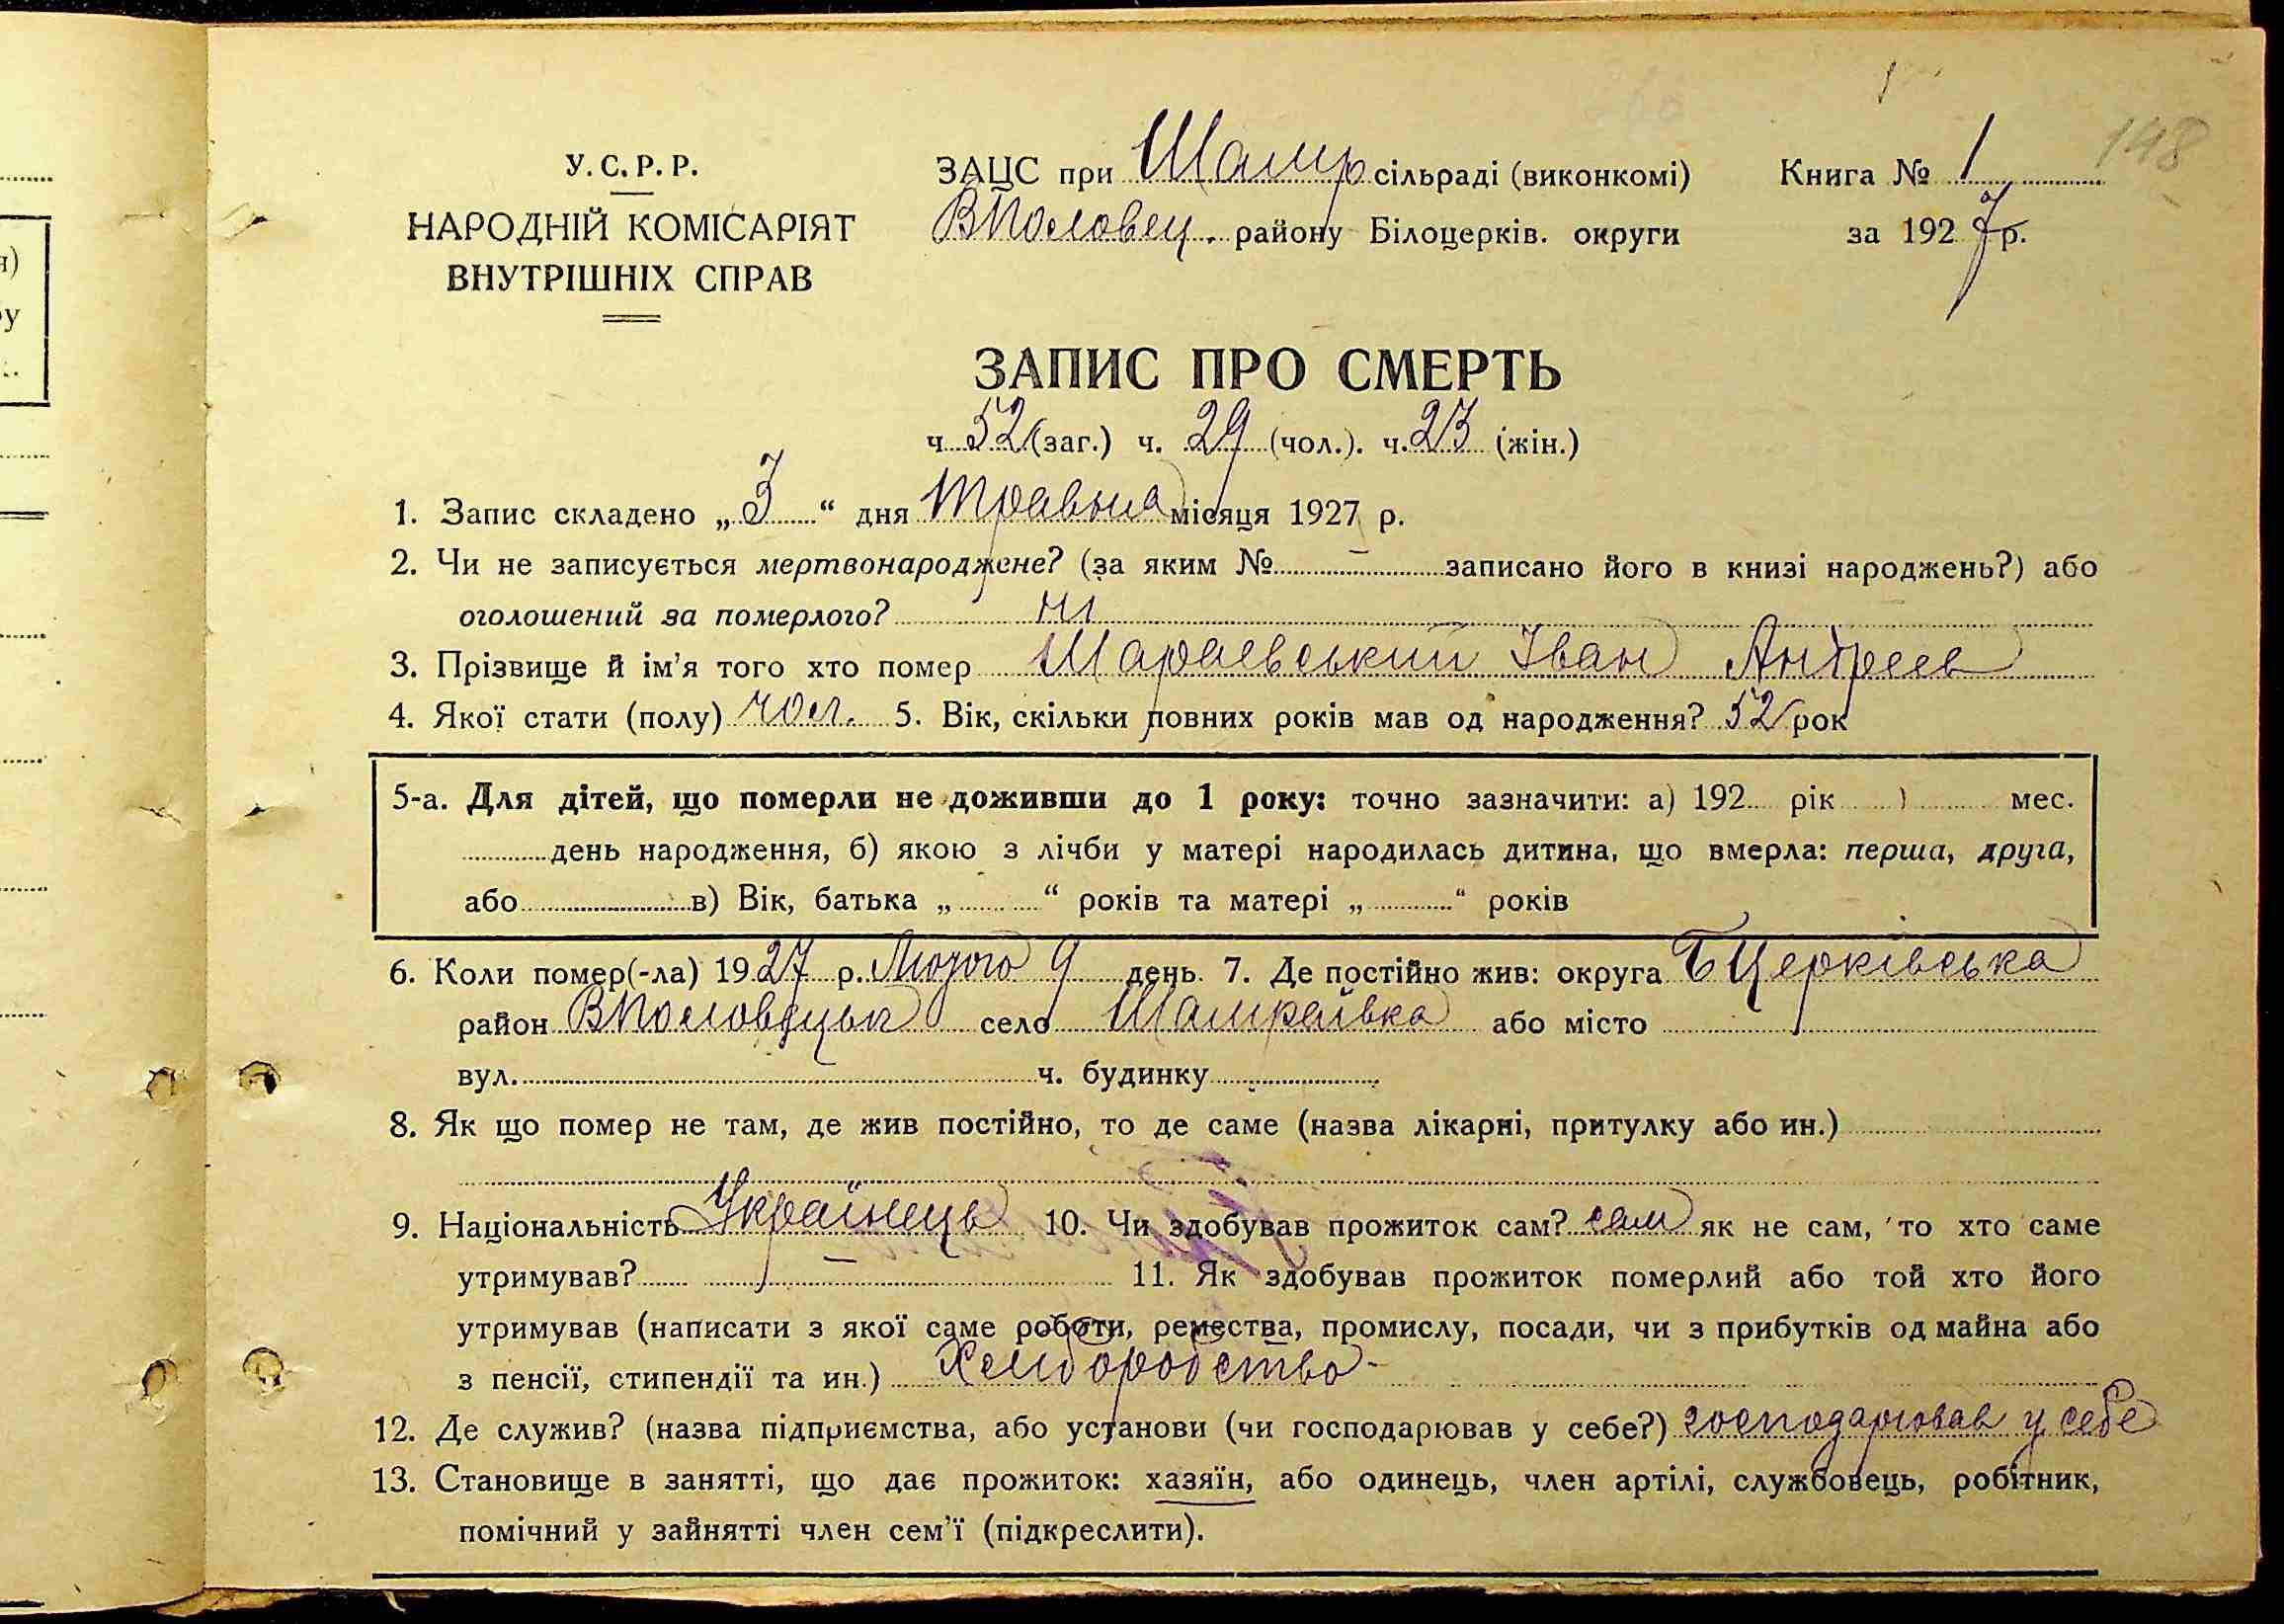 198
У. С. Р. Р.
НАРОДНІЙ КОМІСАРІЯТ
ВНУТРІШНІХ СПРАВ
ЗАЦС при Шамр сільраді (виконкомі)
ВПоловец. району Білоцерків. округи
Книга № 1
за 1927 р.
ЗАПИС ПРО СМЕРТЬ
ч. 52 (заг.) ч. 29 (чол.). ч. 23 (жін.)
1. Запис складено „ 3 “ дня травня місяця 1927 р.
2. Чи не записується мертвонароджене? (за яким № – записано його в книзі народжень?) або
оголошений за померлого? ні
3. Прізвище й ім’я того хто помер Шараевський Іван Андреев
4. Якої стати (полу) чол. 5. Вік, скільки повних років мав од народження? 52 рок
5-а. Для дітей, що померли не доживши до 1 року: точно зазначити: а) 192 рік мес.
день народження, б) якою з лічби у матері народилась дитина, що вмерла: перша, друга,
або в) Вік, батька „ “ років та матері „ “ років
6. Коли помер(-ла) 1927 р. Лютого 9 день. 7. Де постійно жив: округа БЦерківська
район ВПоловецьк село Шамраївка або місто
вул. ч. будинку
8. Як що помер не там, де жив постійно, то де саме (назва лікарні, притулку або ин.)
9. Національність Українець 10. Чи здобував прожиток сам? сам як не сам, то хто саме
утримував? 11. Як здобував прожиток померлий або той хто його
утримував (написати з якої саме роботи, ремества, промислу, посади, чи з прибутків од майна або
з пенсії, стипендії та ин.) Хліборобство
12. Де служив? (назва підприємства, або установи (чи господарював у себе?) господарював у себе
13. Становище в занятті, що дає прожиток: хазяїн, або одинець, член артілі, службовець, робітник,
помічний у зайнятті член сем’ї (підкреслити).